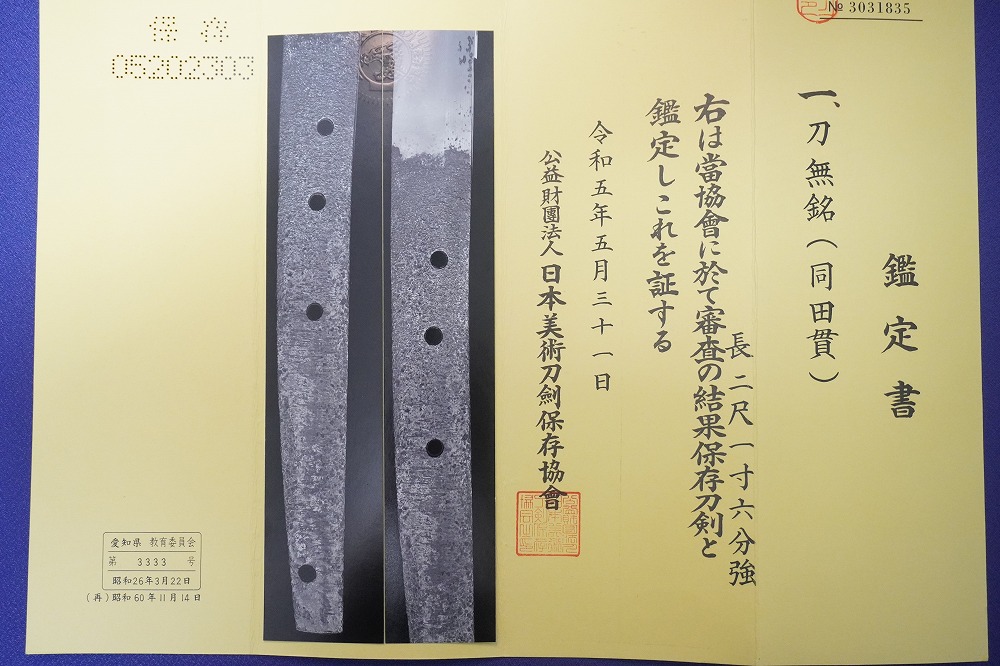 № 3031835
鑑定書
一、刀無銘(同田貫)
長二尺一寸六分強
右は當協會に於て審査の結果保存刀剣と
鑑定しこれを証する
令和五年五月三十一日
公益財團法人日本美術刀劍保存協會
保存
05202303
愛知県 教育委員会
第 3333 号
昭和26年3月22日
(再)昭和60年11月14日